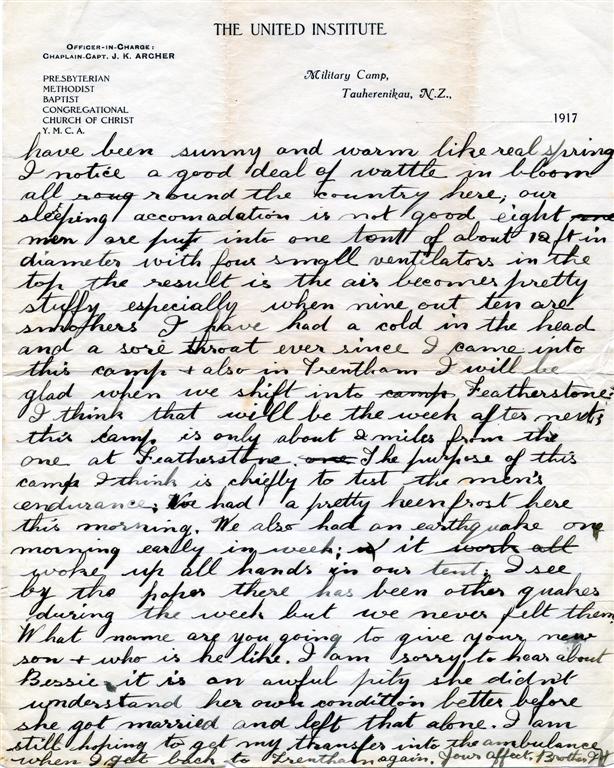 THE UNITED INSTITUTE
OFFICER-IN-CHARGE:
CHAPLAIN-CAPT. J. K. ARCHER
PRESBYTERIAN
METHODIST
BAPTIST
CONGREGATIONAL
CHURCH OF CHRIST
Y. M. C. A.
Military Camp,
Tauherenikau, N.Z.,
1917
have been sunny and warm like real spring
I notice a good deal of wattle in bloom
all roug round the country here, our
sleeping accomadation is not good eight one
men are put into one tent of about 12 ft in
diameter with four small ventilators in the
top the result is the air becomes pretty
stuffy especially when nine out ten are
smokers I have had a cold in the head
and a sore throat ever since I came into
this camp + also in Trentham I will be
glad when we shift into camp, Featherstone:
I think that will be the week after next;
this camp is only about 2 miles from the
one at Featherstone. one The purpose of this
camp I think is chiefly to test the men's
endurance; We had a pretty keen frost here
this morning. We also had an earthquake one
morning early in week; it work all
woke up all hands in our tent; I see
by the paper there has been other quakes
during the week but we never felt them
What name are you going to give your new
son + who is he like. I am sorry to hear about
Bessie it is an awful pity she didn't
understand her own condition better before
she got married and left that alone. I am
still hoping to get my transfer into the ambulance
when I get back to Trentham again. Yours affect. Brother